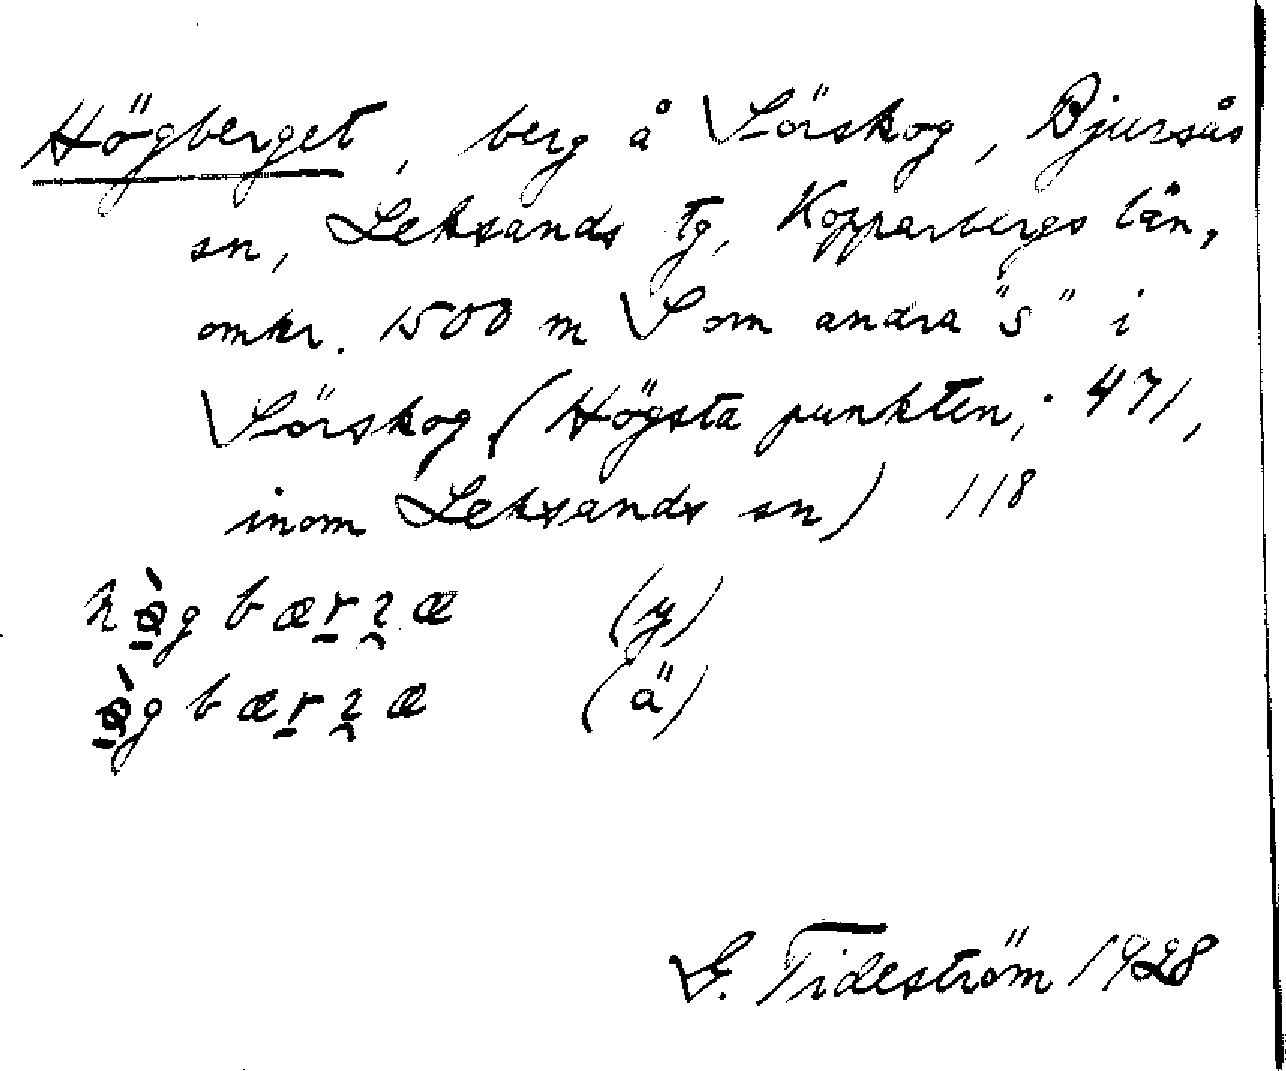 Högberget, berg å Sörskog, Bjursås
sn, Leksands tg, Kopparbergs län,
omkr. 1500 m S om andra "s" i
Sörskog (Högsta punkten, 471,
inom Leksands sn) 118
(y)
(ä)
G. Tideström 1928